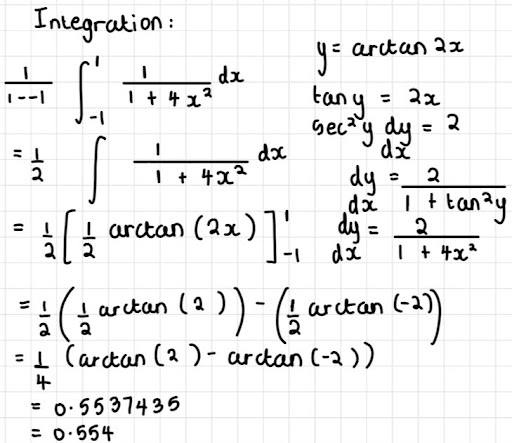 Integration:
1/(1--1) ∫_{-1}^{1} 1/(1 + 4x²) dx
= 1/2 ∫ 1/(1 + 4x²) dx
= 1/2 [ 1/2 arctan (2x) ]_{-1}^{1}
= 1/2 ( 1/2 arctan (2) ) - ( 1/2 arctan (-2) )
= 1/4 (arctan (2) - arctan (-2))
= 0.5537435
= 0.554
y = arctan 2x
tan y = 2x
sec² y dy/dx = 2
dy/dx = 2/(1 + tan² y)
dy/dx = 2/(1 + 4x²)